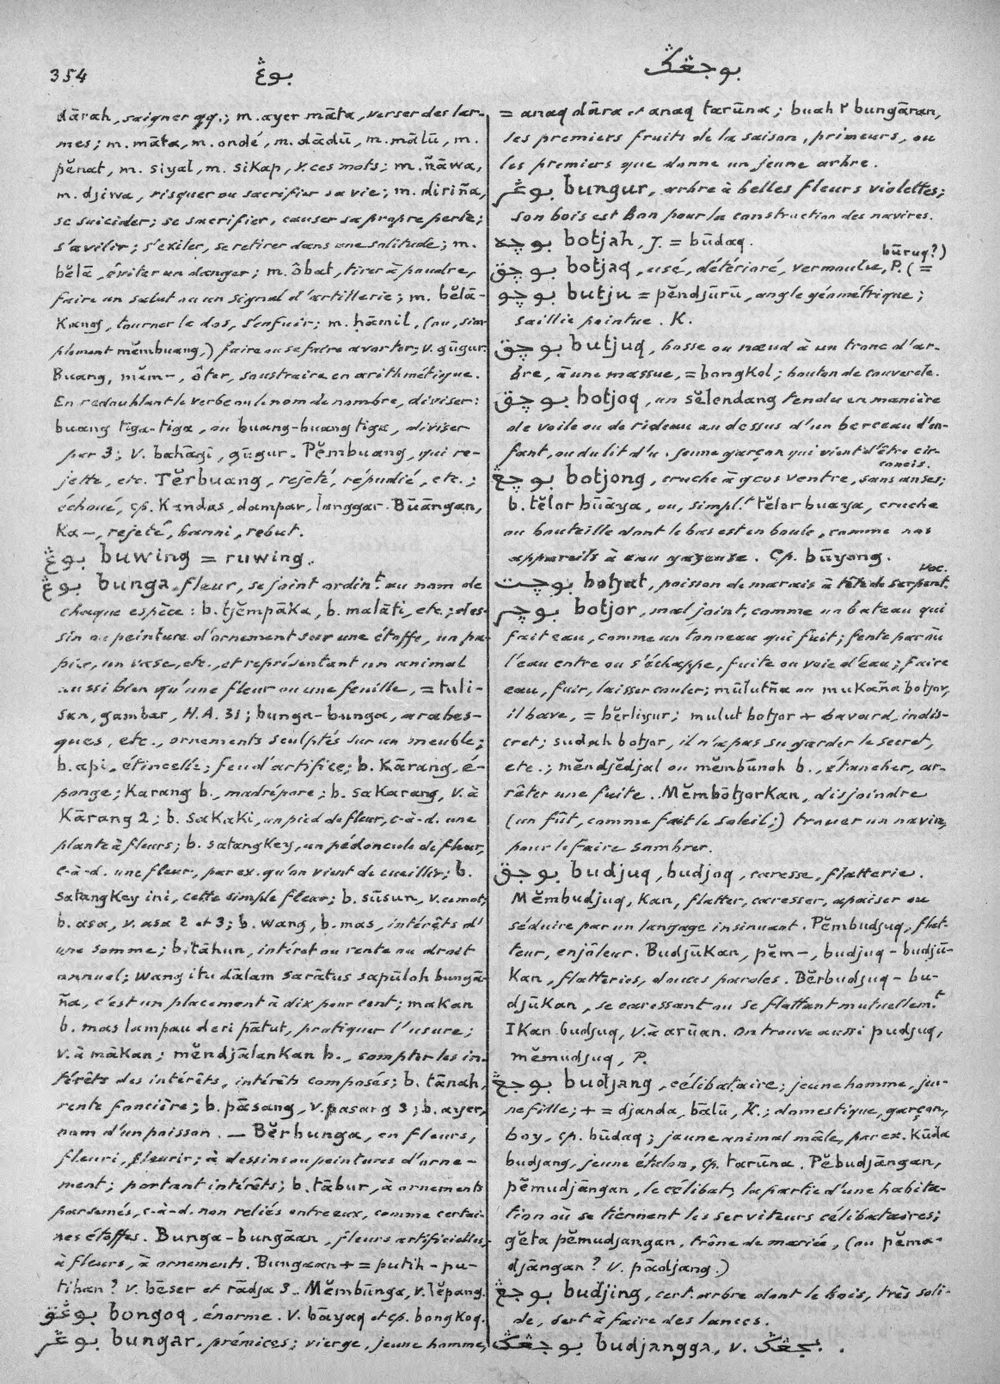 354
بوڠ
بوجڠݢ
dārah, saigner qq.; m. ayer māta, verser des lar-
mes; m. māta, m. ondé, m. dādū, m. mālū, m.
pĕnat, m. siyal, m. sikap, v. ces mots; m. ñāwa,
m. djiwa, risquer ou sacrifier sa vie; m. diriña,
se suicider; se sacrifier, causer sa propre perte;
s'avilir; s'exiler, se retirer dans une solitude; m.
bĕlā, éviter un danger; m. ôbat, tirer à poudre,
faire un salut ou un signal d'artillerie; m. bĕlā-
Kang, tourner le dos, s'enfuir; m. hāmil, (ou, sim-
plement mĕmbuang,) faire ou se faire avorter; v. gūgur.
Buang, mĕm-, ôter, soustraire en arithmétique.
En redoublant le verbe ou le nom de nombre, diviser:
buang tiga-tiga, ou buang-buang tiga, diviser
par 3; v. bahāgi, gūgur. Pĕmbuang, qui re-
jette, etc. Tĕrbuang, rejeté, répudié, etc.;
échoué, cp. Kandas, dampar, langgar. Būāngan,
Ka-, rejeté, banni, rebut.
بوڠ buwing = ruwing.
بوڠ bunga, fleur, se joint ordin.t au nom de
chaque espèce: b. tjĕmpāKa, b. malāti, etc.; des-
sin ou peinture d'ornement sur une étoffe, un pa-
pier, un vase, etc., et représentant un animal
aussi bien qu'une fleur ou une feuille, = tuli-
san, gambar, H.A. 31; bunga-bunga, arabes-
ques, etc., ornements sculptés sur un meuble;
b. api, étincelle; feu d'artifice; b. Kārang, é-
ponge; Karang b., madrépore; b. saKarang, v. à
Kārang 2; b. saKaKi, un pied de fleur, c-à-d. une
plante à fleurs; b. satangKey, un pédoncule de fleur,
c-à-d. une fleur, par ex. qu'on vient de cueillir; b.
satangKey ini, cette simple fleur; b. sūsun, v. ce mot;
b. asa, v. asa 2 et 3; b. wang, b. mas, intérêts d'
une somme; b. tāhun, intérêt ou rente ou droit
annuel; wang itu dālam sarātus sapūloh bungā-
ña, c'est un placement à dix pour cent; maKan
b. mas lampau deri pātut, pratiquer l'usure;
v. à māKan; mĕndjālanKan b., compter les in-
térêts des intérêts, intérêts composés; b. tānah,
rente foncière; b. pāsang, v. pasang 3; b. ayer,
nom d'un poisson. — Bĕrbunga, en fleurs,
fleuri, fleurir; à dessins ou peintures d'orne-
ment; portant intérêts; b. tābur, à ornements
parsemés, c-à-d. non reliés entre eux, comme certai-
nes étoffes. Bunga-bungāan, fleurs artificielles,
à fleurs, à ornements. Bungaan + = putih-pu-
tihan? v. bēser et rādja 3. Mĕmbūnga, v. lĕpang.
بوڠق bongoq, énorme. v. bāyaq et cp. bongKoq.
بوڠر bungar, prémices; vierge, jeune homme,
= anaq dāra et anaq tarūna; buah² bungāran,
les premiers fruits de la saison, primeurs, ou
les premiers que donne un jeune arbre.
بوڠر bungur, arbre à belles fleurs violettes;
son bois est bon pour la construction des navires.
بوچه botjah, J. = būdaq.
بوچق botjaq, usé, détérioré, vermoulu, P. (= būruq?)
بوچو butju = pĕndjūrū, angle géométrique;
saillie pointue. K.
بوچق butjuq, bosse ou nœud à un tronc d'ar-
bre, à une massue, = bongKol; bouton de couvercle.
بوچق botjoq, un sĕlendang tendu en manière
de voile ou de rideau au dessus d'un berceau d'en-
fant, ou du lit d'un jeune garçon qui vient d'être cir-
concis.
بوچڠ botjong, cruche à gros ventre, sans anses;
b. tĕlor būāya, ou, simpl.t tĕlor buaya, cruche
ou bouteille dont le bas est en boule, comme nos
appareils à eau gazeuse. Cp. būyong.
بوچت botjat, poisson de marais à tête de serpent. Voc.
بوچر botjor, mal joint, comme un bateau qui
fait eau, comme un tonneau qui fuit; fente par où
l'eau entre ou s'échappe, fuite ou voie d'eau; faire
eau, fuir, laisser couler; mūlutña ou muKaña botjor,
il bave, = bĕrligur; mulut botjor + bavard, indis-
cret; sudah botjor, il n'a pas su garder le secret,
etc.; mĕndjĕdjal ou mĕmbūnoh b., étancher, ar-
rêter une fuite. MĕmbōtjorKan, disjoindre
(un fût, comme fait le soleil;) trouer un navire,
pour le faire sombrer.
بوجق budjuq, budjoq, caresse, flatterie.
Mĕmbudjuq, Kan, flatter, caresser, apaiser ou
séduire par un langage insinuant. Pĕmbudjuq, flat-
teur, enjôleur. BudjūKan, pĕm-, budjuq-budjū-
Kan, flatteries, douces paroles. Bĕrbudjuq-bu-
djūKan, se caressant ou se flattant mutuellem.t
IKan budjuq, v. à arūan. On trouve aussi pudjuq,
mĕmudjuq, P.
بوجڠ budjang, célibataire; jeune homme, jeu-
ne fille; + = djanda, bālū, K.; domestique, garçon,
boy, cp. būdaq; jeune animal mâle, par ex. Kūda
budjang, jeune étalon, cp. tarūna. Pĕbudjāngan,
pĕmudjāngan, le célibat; la partie d'une habita-
tion où se tiennent les serviteurs célibataires;
gĕta pĕmudjangan, trône de marié, (ou pĕma-
djāngan? v. pādjang.)
بوجڠ budjing, cert. arbre dont le bois, très soli-
de, sert à faire des lances.
بوجڠݢ budjangga, v. بجڠݢ.